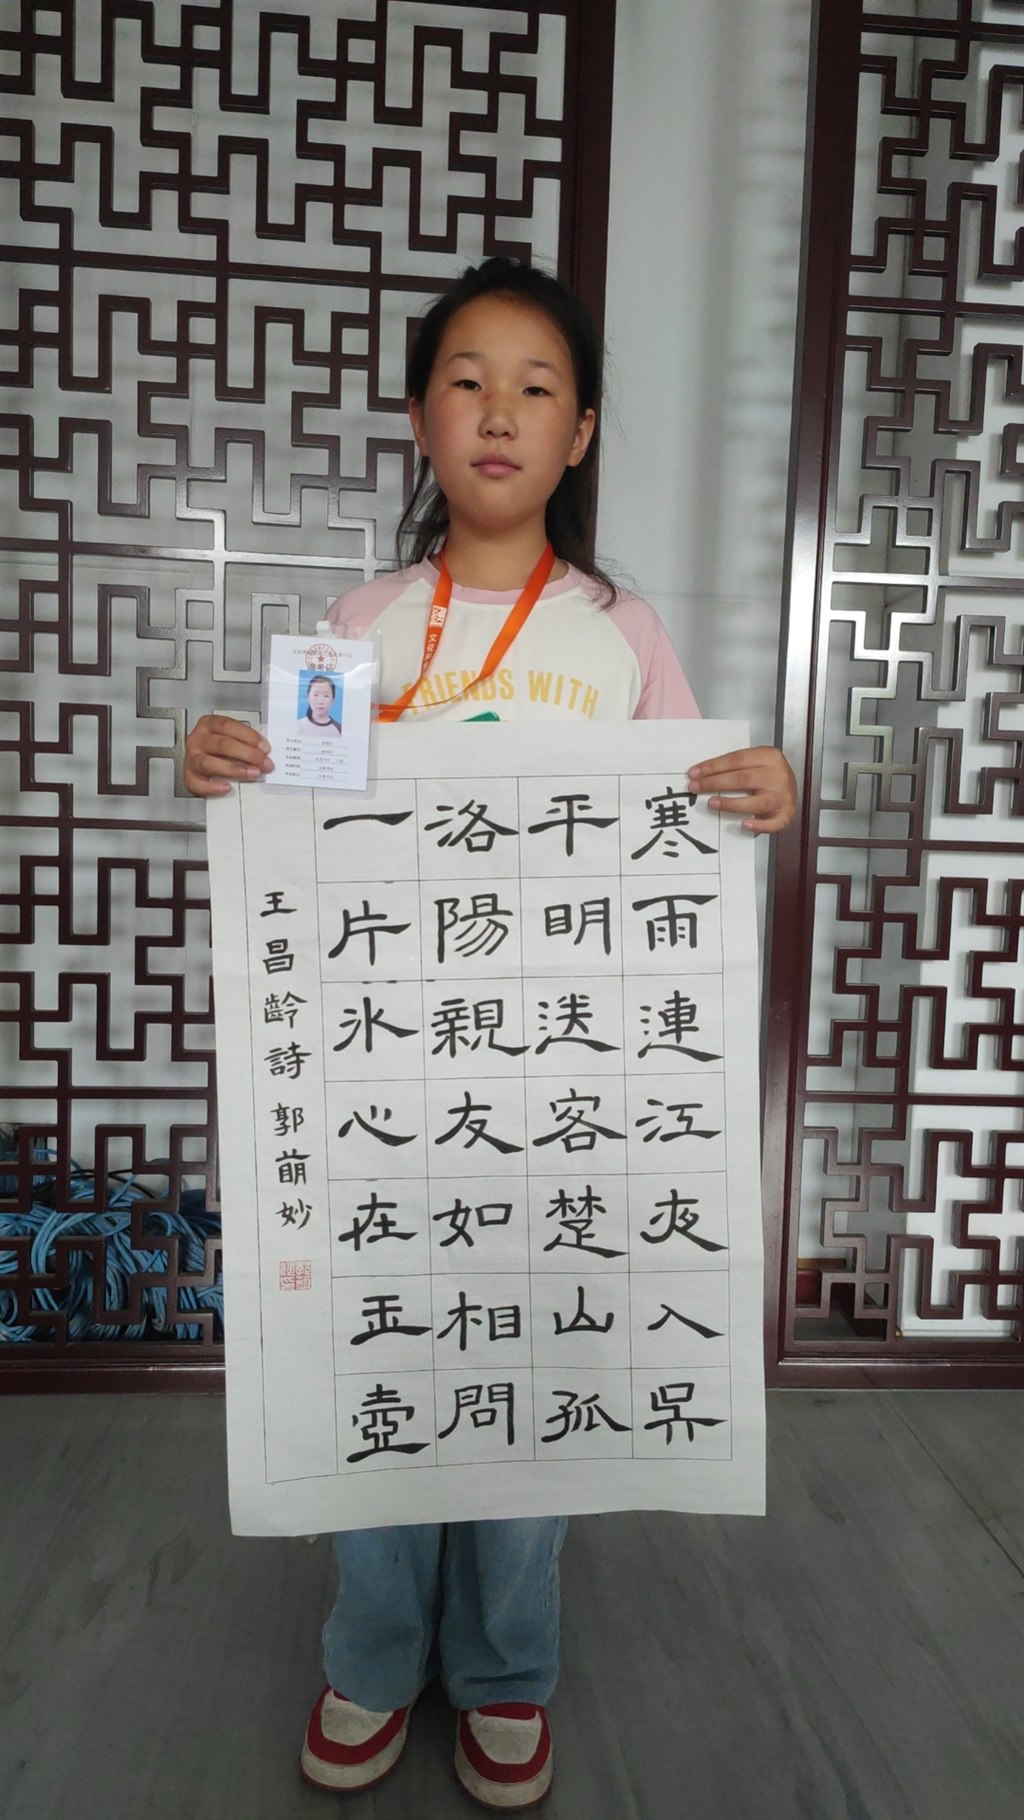 寒雨連江夜入吳
平明送客楚山孤
洛陽親友如相問
一片冰心在玉壺
王昌齡詩 郭萠妙
FRIENDS WITH
准考证